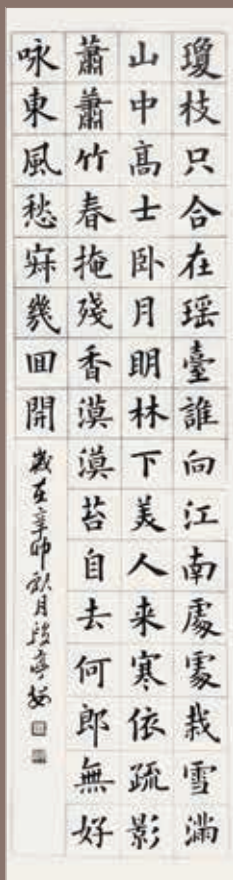 瓊枝只合在瑶臺誰向江南處處栽雪滿
山中髙士卧月眀林下美人来寒依疏影
蕭蕭竹春掩殘香漠漠苔自去何郎無好
咏東風愁寂幾囬開
歲在辛卯秋月